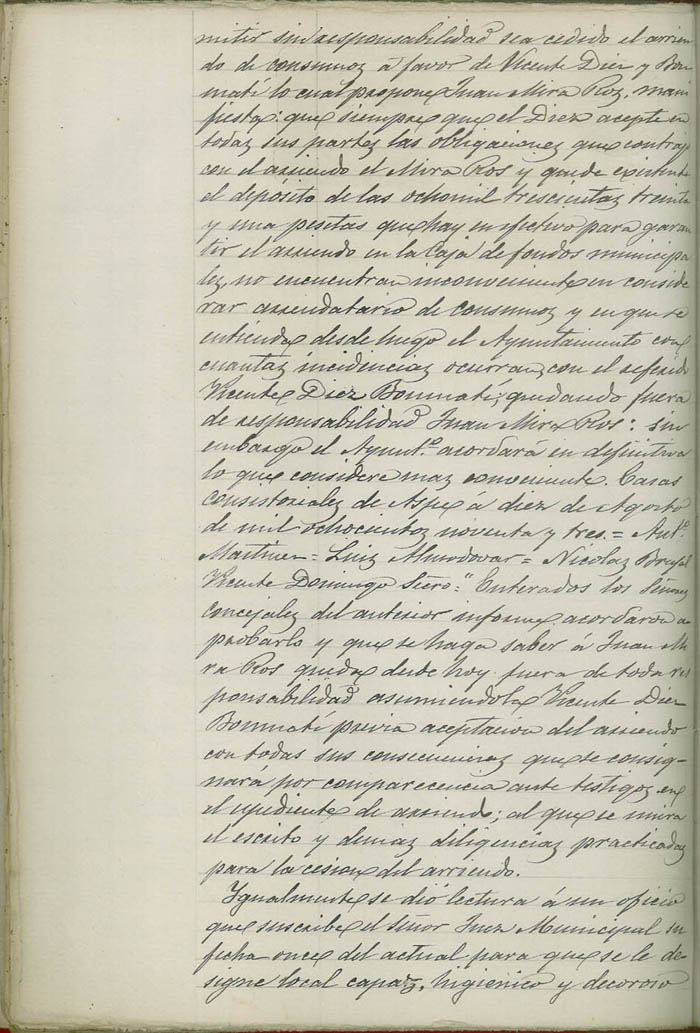 mitir sin responsabilidad sea cedido el arrien
do de consumos á favor de Vicente Diez y Bon
matí lo cual propone Juan Mira Roz, mani
fiesta: que siempre que el Diez acepte en
todas sus partes las obligaciones que contrajo
con el arriendo el Mira Ros y quede existente
el depósito de las ochomil trescientas treinta
y una pesetas que hay en efectivo para garan
tir el arriendo en la Caja de fondos municipa
les, no encuentran inconveniente en conside
rar arrendatario de consumos y en que se
entienda desde luego el Ayuntamiento con
cuantas incidencias ocurran, con el referido
Vicente Diez Bonmatí, quedando fuera
de responsabilidad Juan Mira Ros: sin
embargo el Ayuntº. acordará en definitiva
lo que considere mas conveniente. Casas
consistoriales de Aspe á diez de Agosto
de mil ochocientos noventa y tres. = Antº.
Martinez = Luis Almodovar = Nicolas
Vicente Domingo " Enterados los Señores
Concejales del anterior informe, acordaron a
probarlo y que se haga saber á Juan Mi
ra Ros queda desde hoy fuera de toda res
ponsabilidad asumiendola Vicente Diez
Bonmatí previa aceptacion del arriendo
con todas sus consecuencias que se consig-
nará por comparecencia ante testigos en
el espediente de arriendo; al que se unira
el escrito y demas diligencias practicadas
para la cesion del arriendo.
Igualmente se dió lectura á un oficio
que suscribe el señor Juez Municipal su
fecha once del actual para que se le de-
signe local capaz, higienico y decoroso